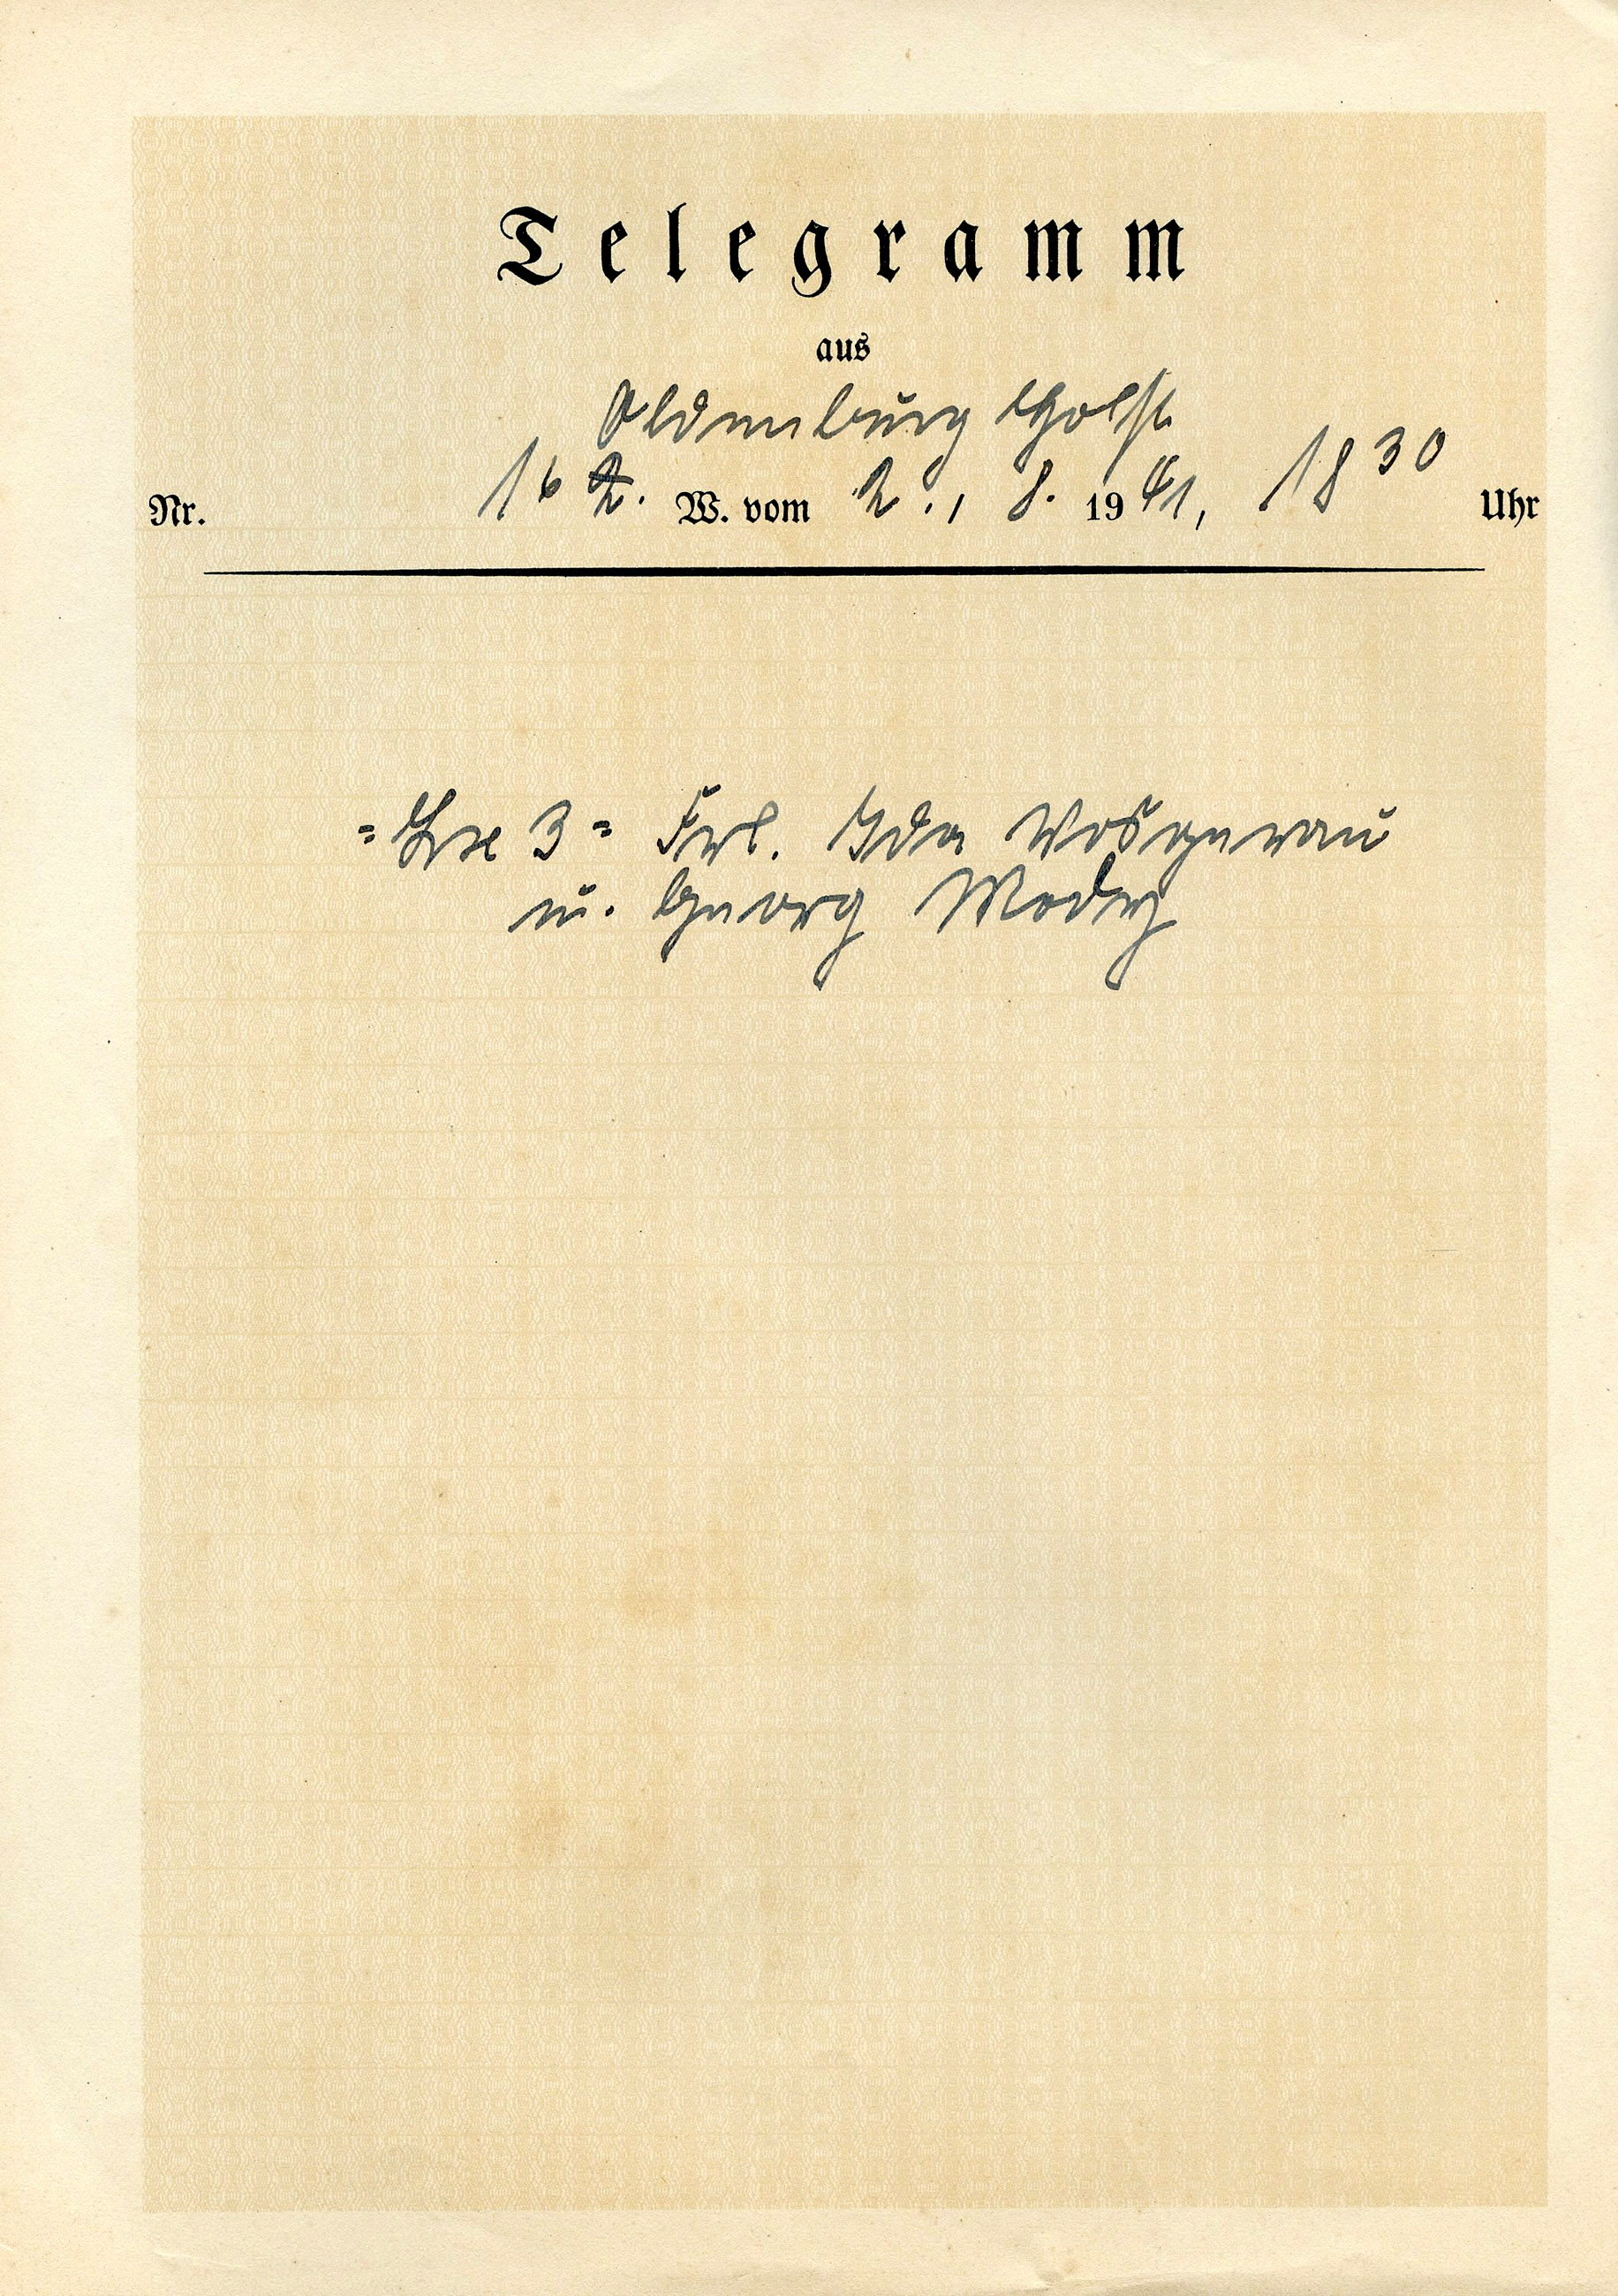 Telegramm
aus
Oldenburg Holst
Nr. 16 2. W. vom 2., 8. 1941, 18 30 Uhr
= Lx 3 = Frl. Ida Vosgerau
u. Georg